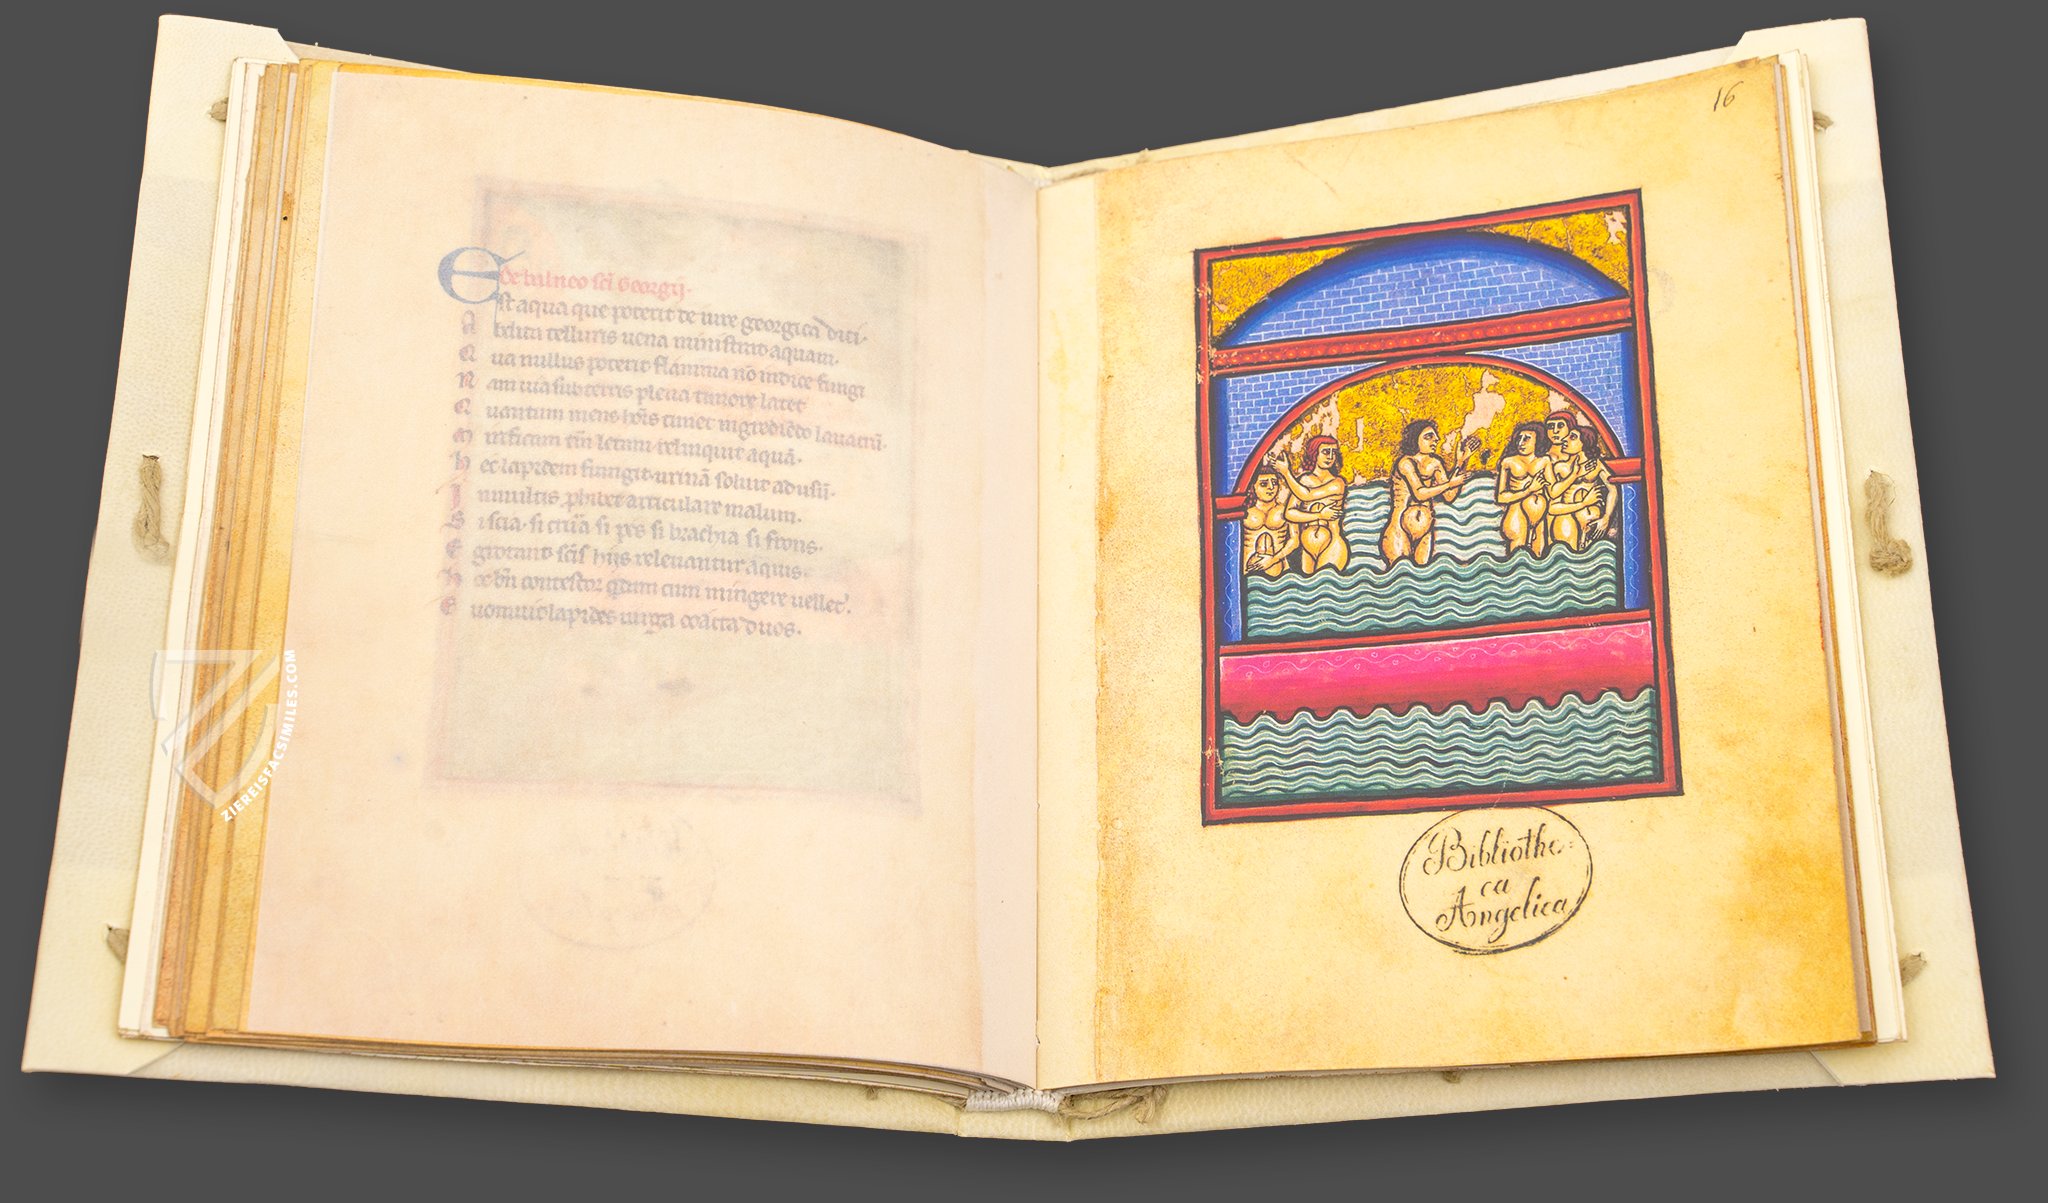 De balneo sc̃i Georgij.
Est aqua que poterit de iure georgica dici.
Abdita telluris uena ministrat aquam.
Qua nullus poterit flamma nõ indice fungi
Nam uia subterris plena timore latet
Quantum mens hoĩs timet ingrediẽdo lauacrũ.
Mirificum tm̃ letum relinquit aquã.
Hec lapidem frangit urinã soluit ad usũ.
In multis phibet articulare malum.
Si scia si crura si pes si brachia si frons.
Egrotant sc̃is hijs releuantur aquis.
Hoc bñ contestor qdam cum mingere uellet.
Euomuit lapides uirga coacta duos.
16
Bibliothe=
ca
Angelica
ZIEREISFACSIMILES.COM